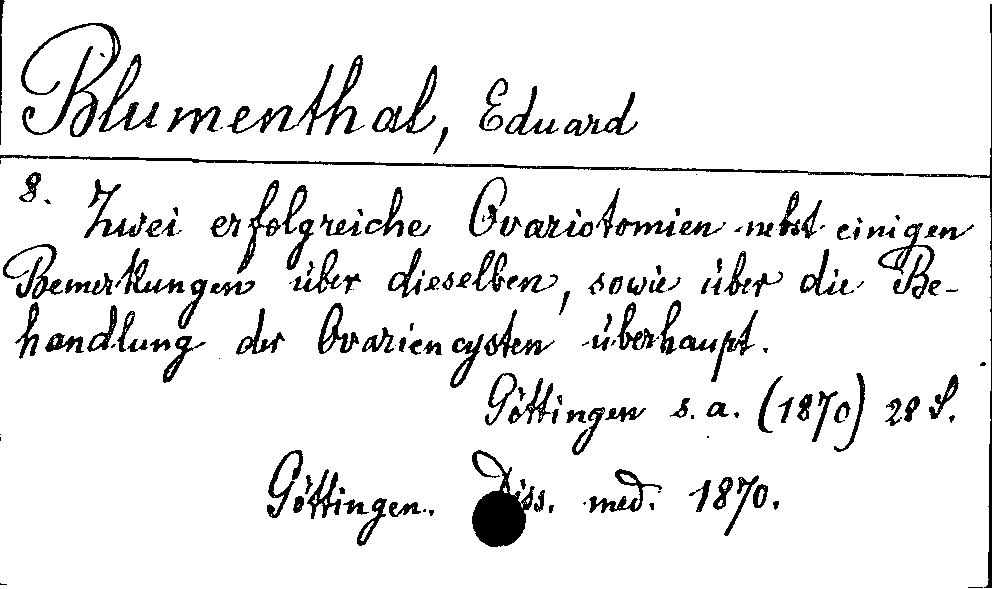 Blumenthal, Eduard
8. Zwei erfolgreiche Ovariotomien nebst einigen
Bemerkungen über dieselben, sowie über die Be-
handlung der Ovariencysten überhaupt.
Göttingen s. a. (1870) 28 S.
Göttingen. Diss. med. 1870.